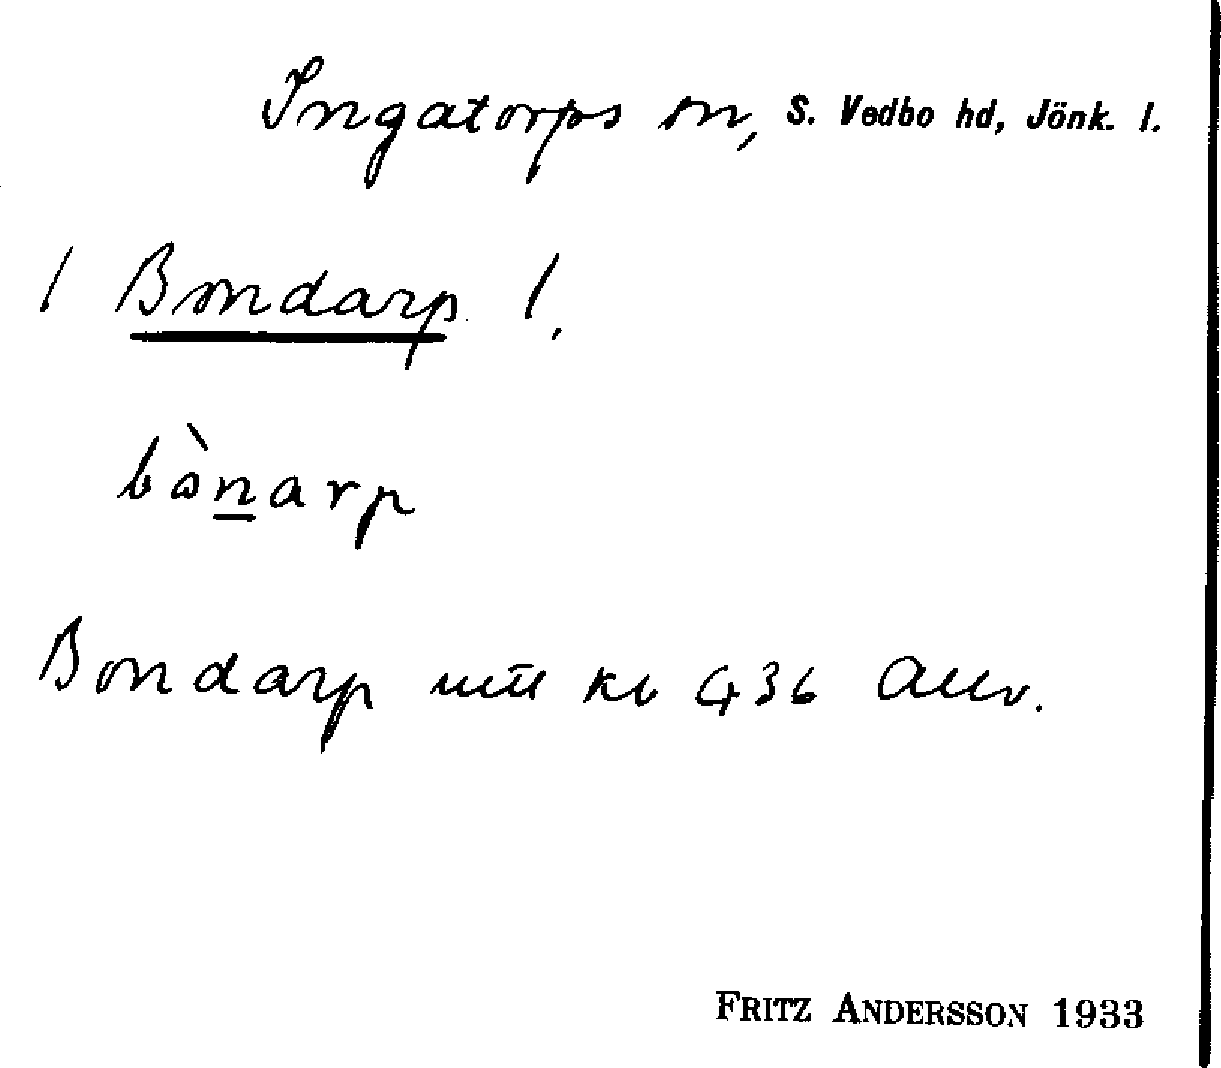 Ingatorps sn, S. Vedbo hd, Jönk. l.
/ Bondarp /.
bònarp
Bondarp mtl kb G36 Allv.
FRITZ ANDERSSON 1933